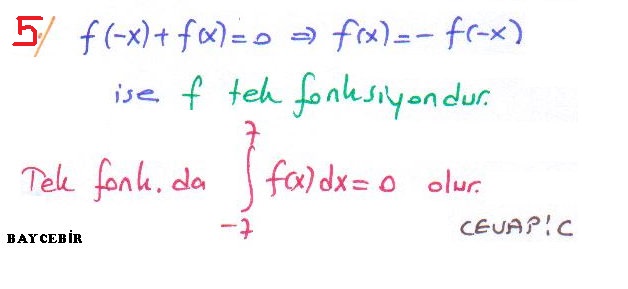 5/ f(-x) + f(x) = 0 ⇒ f(x) = - f(-x)
ise f tek fonksiyondur.
Tek fonk. da ∫₋₇⁷ f(x) dx = 0 olur.
CEVAP: C
BAYCEBİR